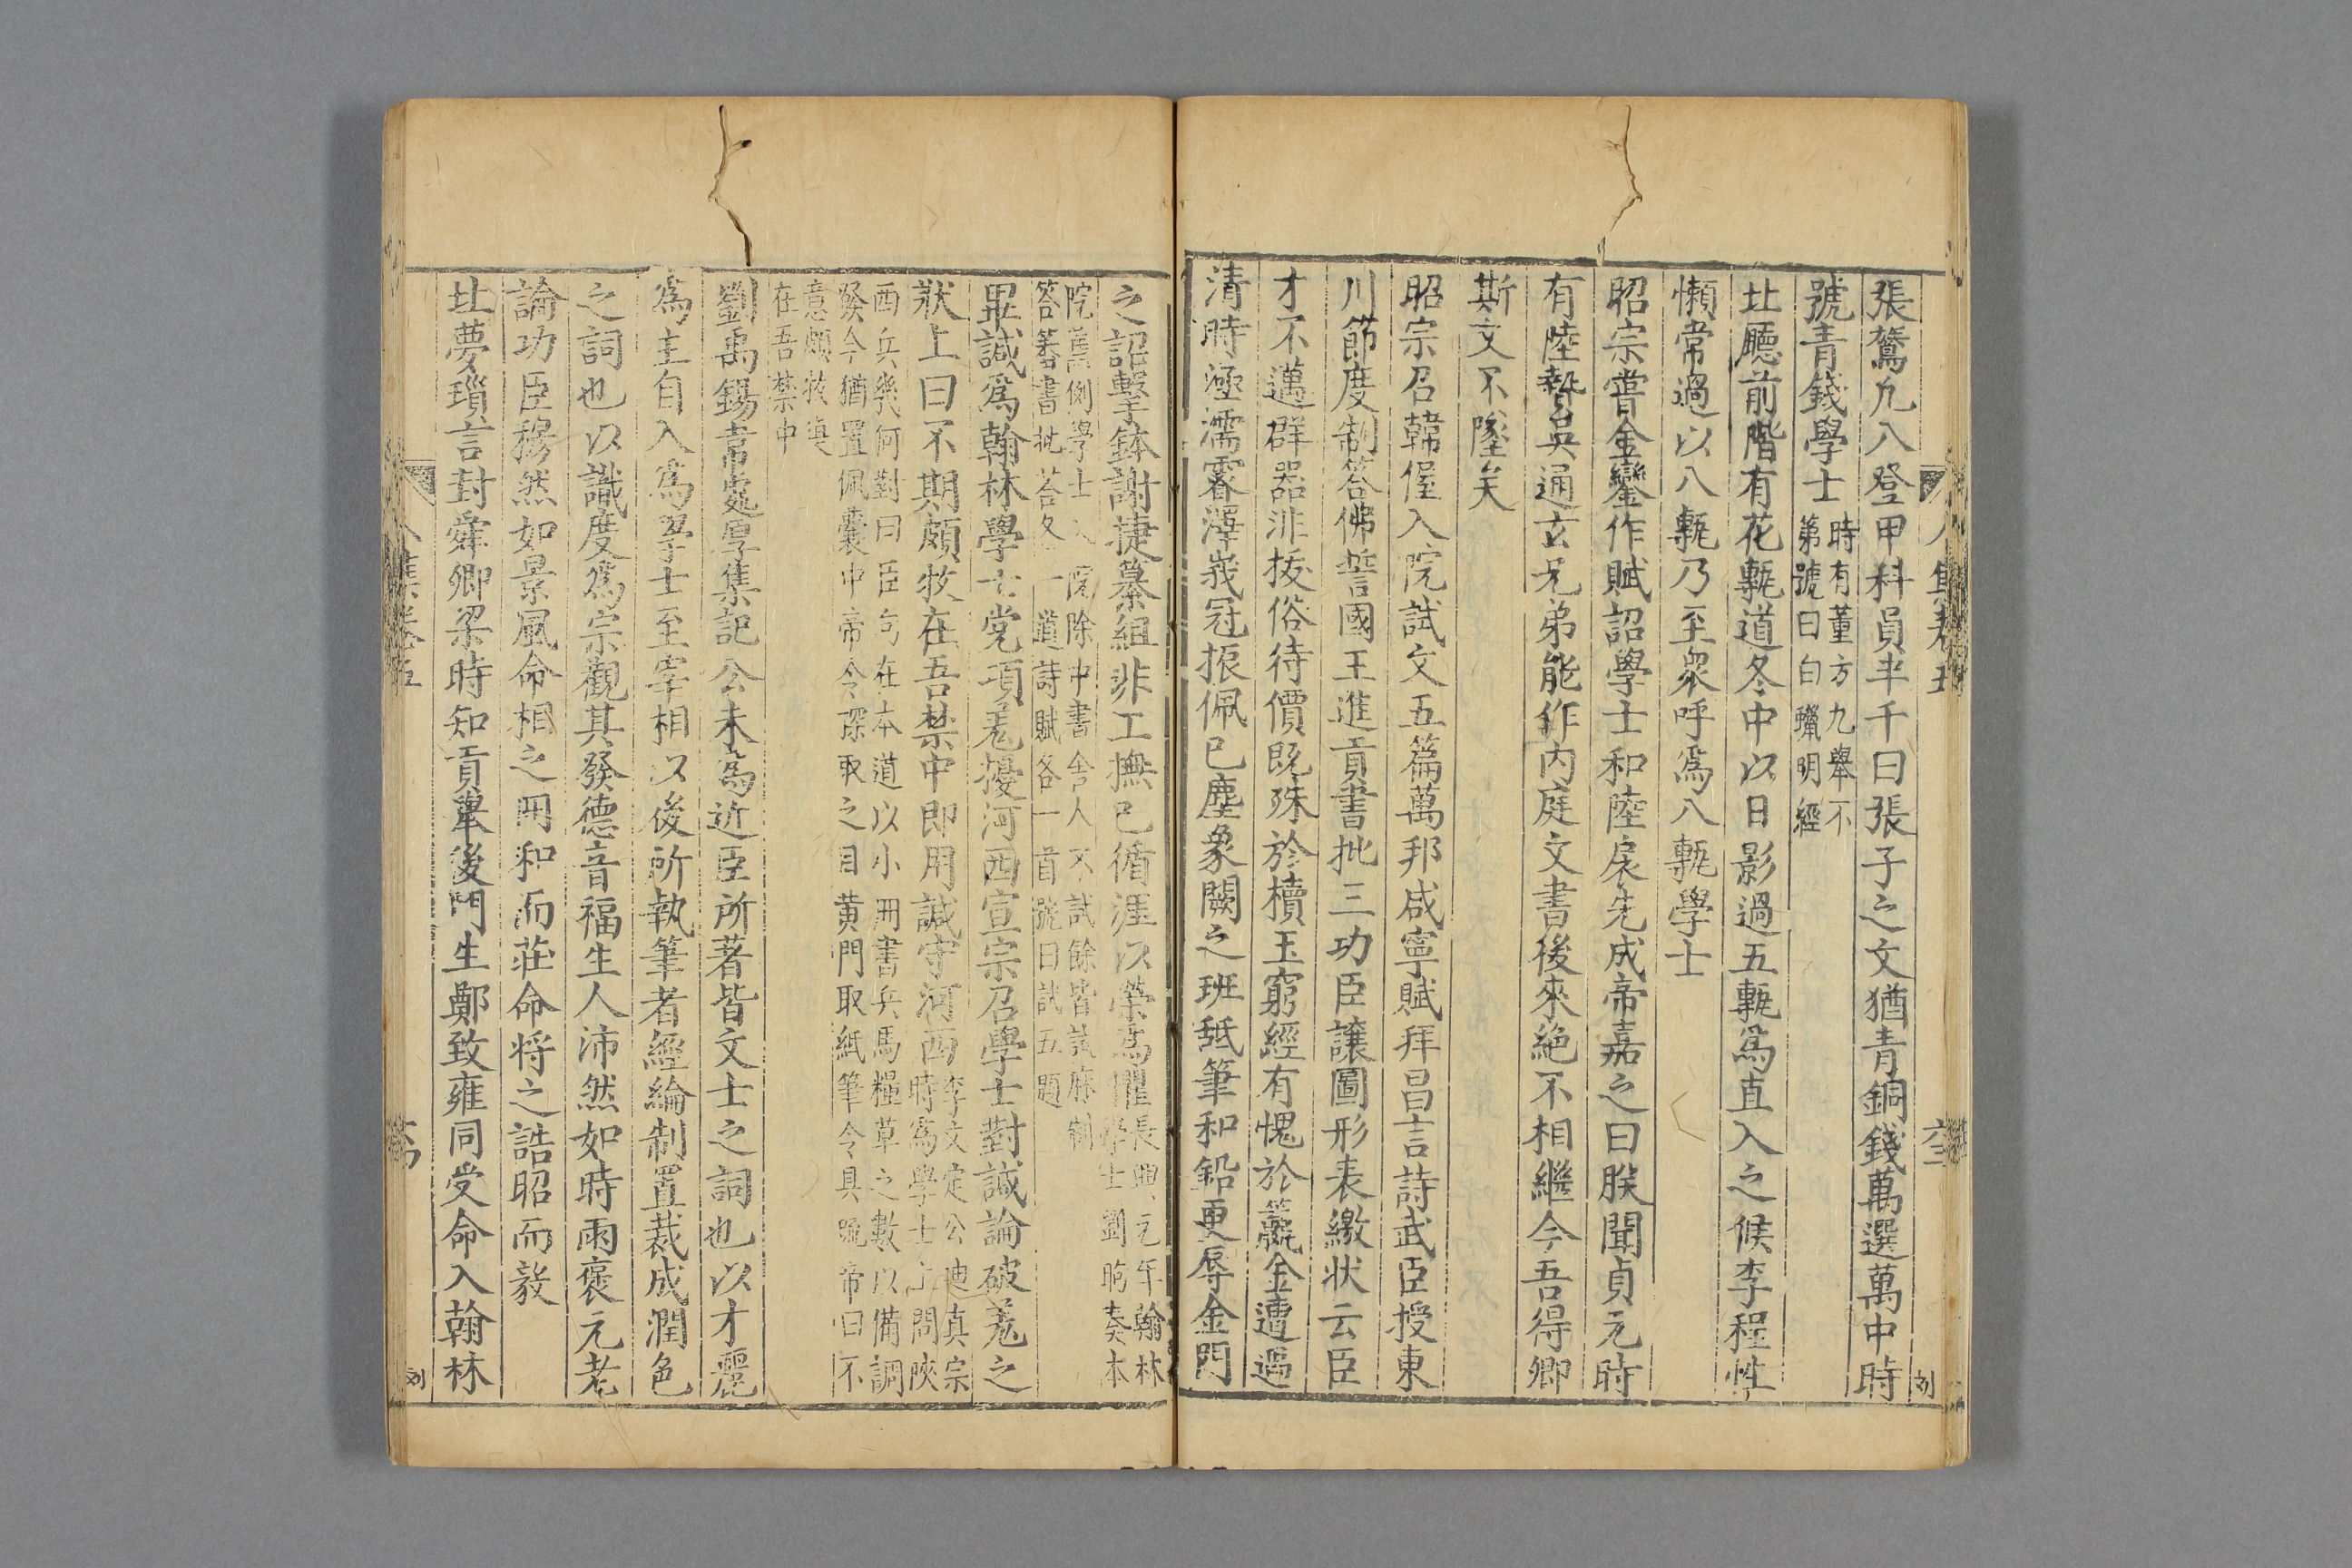 張鷟凡八登甲科員半千曰張子之文猶青銅錢萬選萬中時
號青錢學士時有董方九舉不
第號曰白蠟明經
北廳前階有花甎道冬中以日影過五甎爲直入之候李程性
懶常過以八甎乃至衆呼爲八甎學士
昭宗嘗金鑾作賦詔學士和陸扆先成帝嘉之曰朕聞貞元時
有陸贄吳通玄兄弟能作内庭文書後來絶不相繼今吾得卿
斯文不墜矣
昭宗召韓偓入院試文五篇萬邦咸寧賦拜昌言詩武臣授東
川節度制答佛誓國王進貢書批三功臣讓圖形表繳狀云臣
才不邁群器非拔俗待價既殊於櫝玉窮經有愧於籯金遭遇
清時濡睿澤峩冠振佩已塵象闕之班舐筆和鉛更辱金門
之詔擊鉢謝捷纂組非工撫己循涯以榮爲懼長興元年翰林
學士劉昫奏本
院舊例學士入院除中書舍人不試餘皆試麻制
答蕃書批答各一道詩賦各一首號曰試五題
畢諴爲翰林學士党項羗擾河西宣宗召學士對諴論破羗之
狀上曰不期頗牧在吾禁中即用諴守河西李文定公迪真宗
時爲學士上問陝
西兵幾何對曰臣向在本道以小冊書兵馬糧草之數以備調
發今猶置佩囊中帝令探取之目黄門取紙筆令具疏帝曰不
意頗牧
在吾禁中
劉禹錫韋處厚集記公未爲近臣所著皆文士之詞也以才麗
爲主自入爲學士至宰相以後所執筆者經綸制置裁成潤色
之詞也以識度爲宗觀其發德音福生人沛然如時雨褒元老
論功臣穆然如景風命相之冊和而莊命将之誥昭而毅
北夢瑣言封舜卿梁時知貢舉後門生鄭致雍同受命入翰林